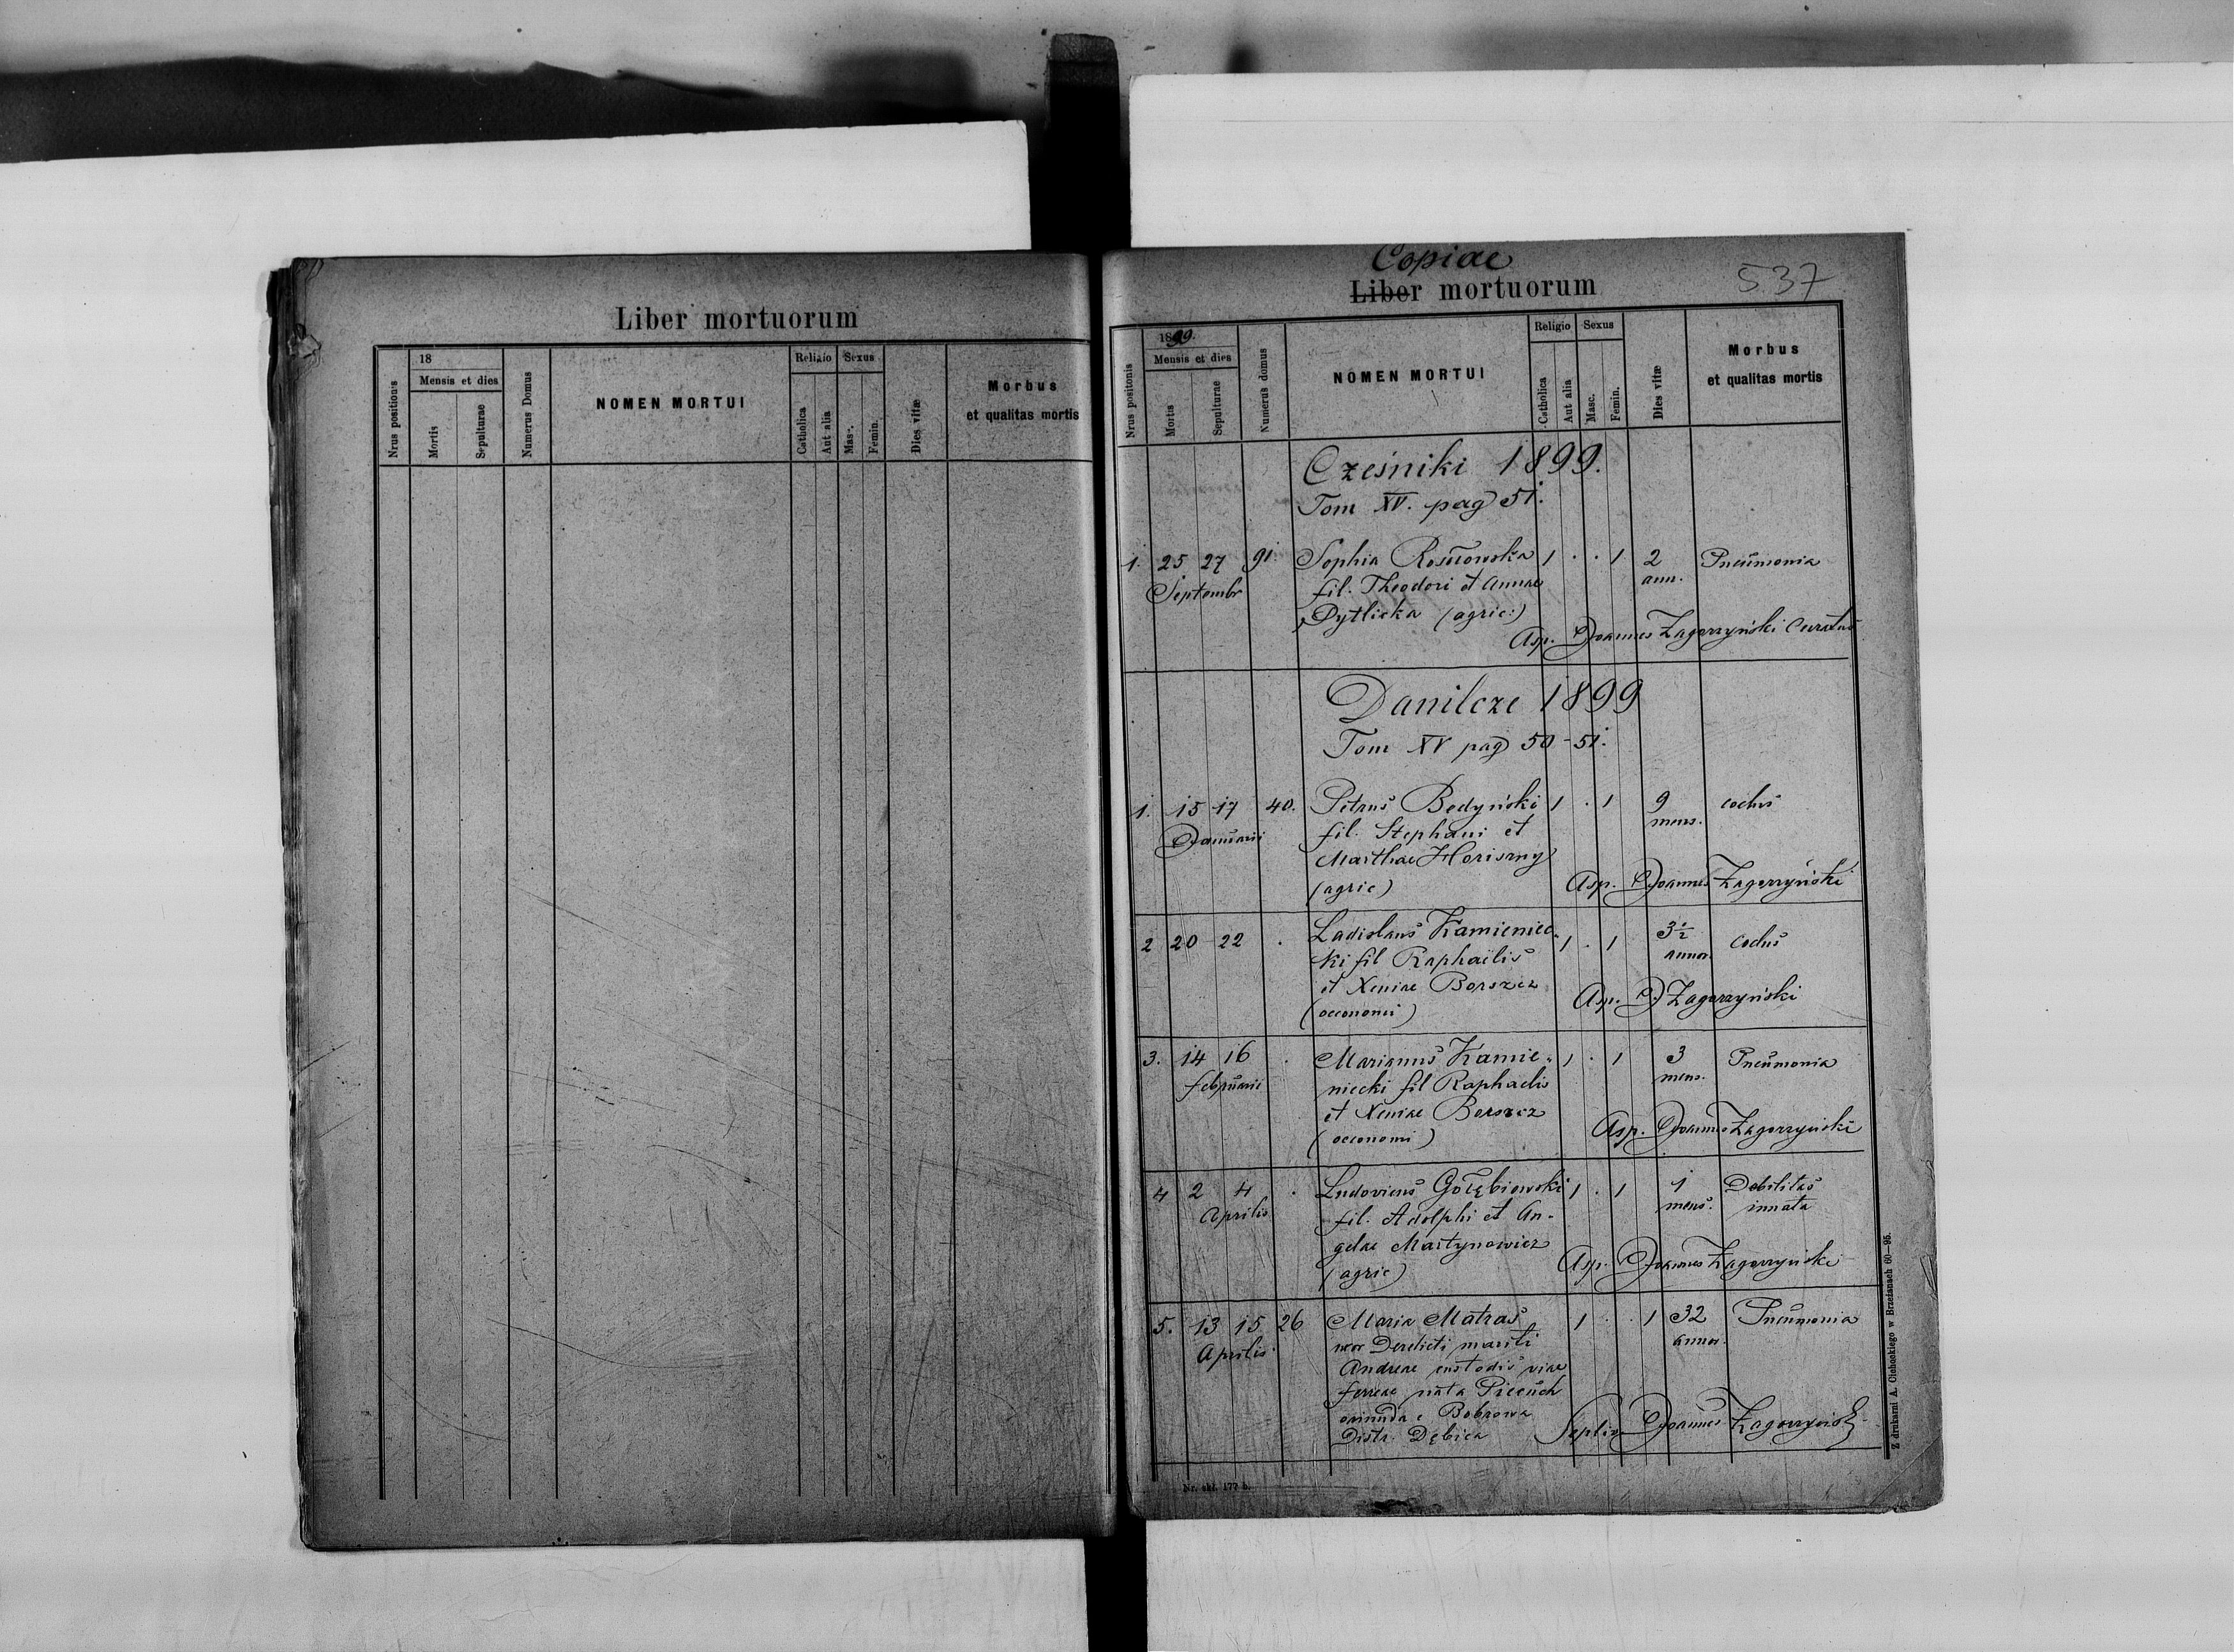 Liber mortuorum
Nrus positionis
18
Mensis et dies
Mortis
Sepulturae
Numerus Domus
NOMEN MORTUI
Religio
Catholica
Aut alia
Sexus
Masc.
Femin.
Dies vitæ
Morbus
et qualitas mortis
Copiae
537
Liber mortuorum
Nrus positonis
1899.
Mensis et dies
Mortis
Sepulturae
Numerus domus
NOMEN MORTUI
Religio
Catholica
Aut alia
Sexus
Masc.
Femin.
Dies vitæ
Morbus
et qualitas mortis
Cześniki 1899.
Tom XV. pag 51.
1. 25 27 91. Sophia Rosołowska 1 . . 1 2 Pneumonia
Septembr fil. Theodori et Annae ann.
Pytlicka (agric:)
Asp. Joannes Zagorzyński Curatus
Danilcze 1899
Tom XV pag 50-51.
1. 15 17 40. Petrus Bedyński 1 . 1 9
Januarii fil. Stephani et mens.
Marthae Horiszny
(agric) Asp. Joannes Zagorzyński
2 20 22 . Ladislaus Kamieniec- 1 . 1 3½
ki fil Raphaelis annor.
et Xeniae Borszcz
(oeconomi) Asp. J Zagorzyński
3. 14 16 . Marianus Kamie- 1 . 1 3 Pneumonia
februarii niecki fil Raphaelis mens.
et Xeniae Borszcz
(oeconomi) Asp. Joannes Zagorzyński
4 2 4 . Ludovicus Gołębiowski 1 . 1 1 Debilitas
Aprilis fil. Adolphi et An- mens. innata
gelae Martynowicz
(agric) Asp. Joannes Zagorzyński
5. 13 15 26 Maria Matras 1 . . 1 32 Pneumonia
Aprilis. uxor Derelicti mariti annor.
Andreae custodis viae
ferreae nata Pieciuch
oriunda e Bobrowa
Distr. Dębica Sepliv. Joannes Zagorzyński
Nr. skł. 177 b.
Z drukarni A. Cichockiego w Brzeżanach 60—95.